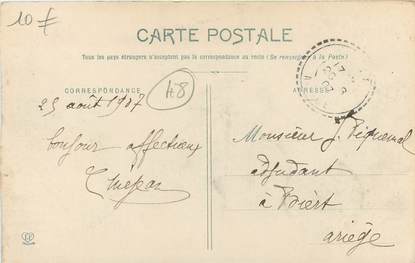 10 F
CARTE POSTALE
Tous les pays étrangers n'acceptent pas la correspondance au recto (Se renseigner à la Poste)
CORRESPONDANCE
ADRESSE
48
25 août 1907
bonjour affectueux
Monsieur J.
adjudant
à Biert
ariège